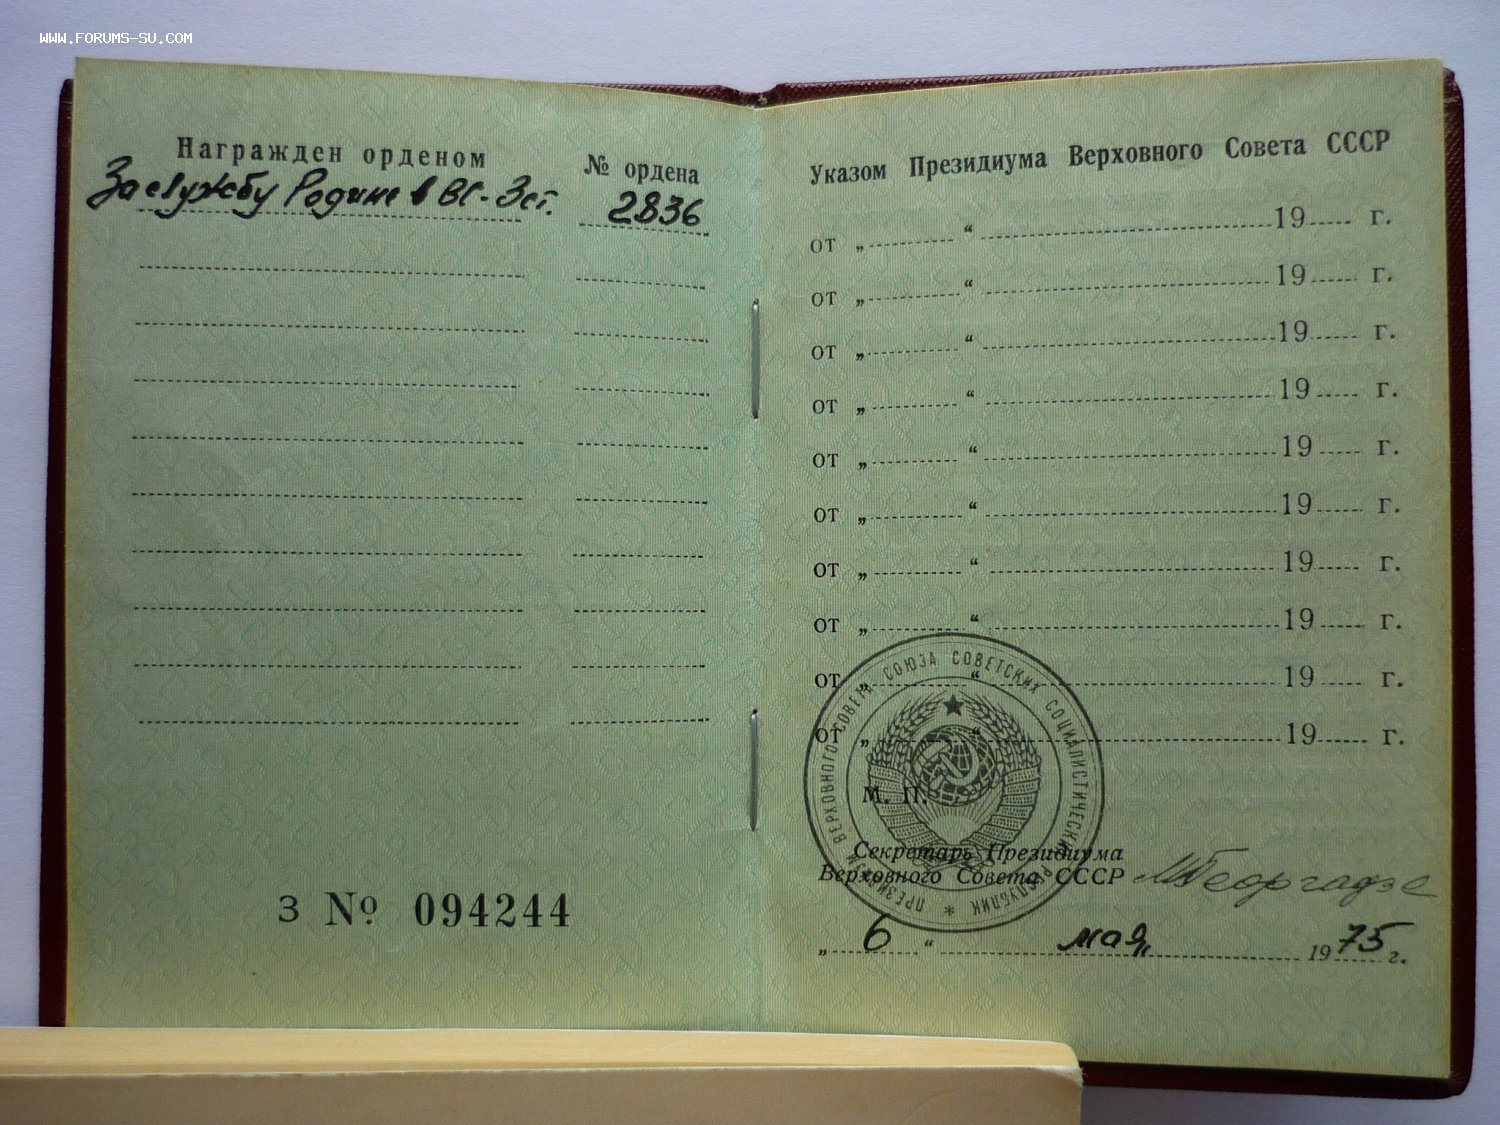 WWW.FORUMS-SU.COM
Награжден орденом
№ ордена
За службу Родине в ВС-3ст.
2836
З № 094244
Указом Президиума Верховного Совета СССР
от „ “ 19 г.
от „ “ 19 г.
от „ “ 19 г.
от „ “ 19 г.
от „ “ 19 г.
от „ “ 19 г.
от „ “ 19 г.
от „ “ 19 г.
от „ “ 19 г.
от „ “ 19 г.
М. П.
ПРЕЗИДИУМ ВЕРХОВНОГО СОВЕТА СОЮЗА СОВЕТСКИХ СОЦИАЛИСТИЧЕСКИХ РЕСПУБЛИК *
Секретарь Президиума
Верховного Совета СССР МГеоргадзе
„ 6 “ мая 1975 г.